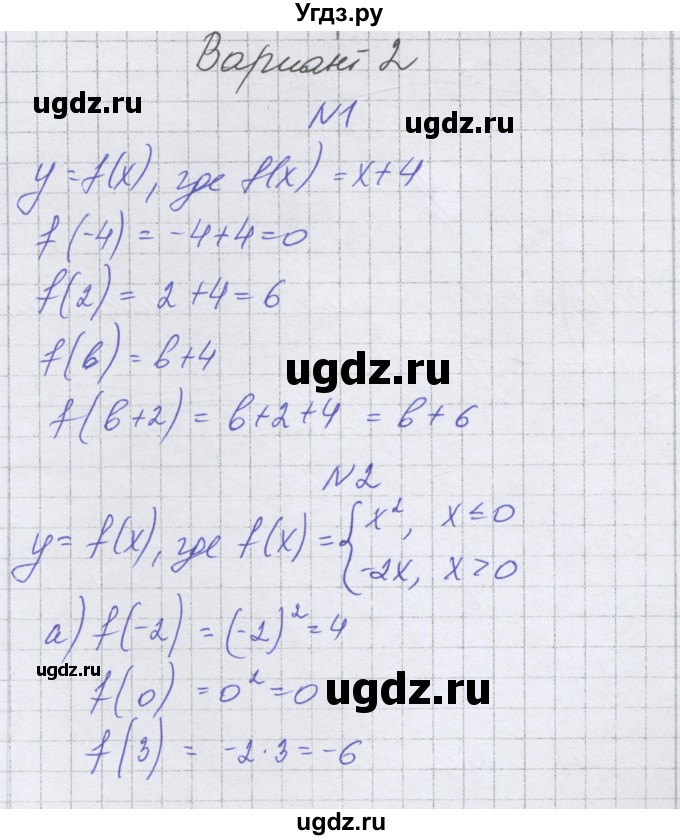 Угдз.ру
Вариант 2
ugdz.ru
ugdz.ru
N1
y=f(x), где f(x) = x+4
f(-4) = -4+4=0
f(2) = 2+4=6
ugdz.ru
f(b) = b+4
f(b+2) = b+2+4 = b+6
N2
y= f(x), где f(x) = { x², x≤0
-2x, x>0
а) f(-2) = (-2)² = 4
ugdz.ru
f(0) = 0² = 0
ugdz.ru
f(3) = -2·3=-6
Угдз.ру